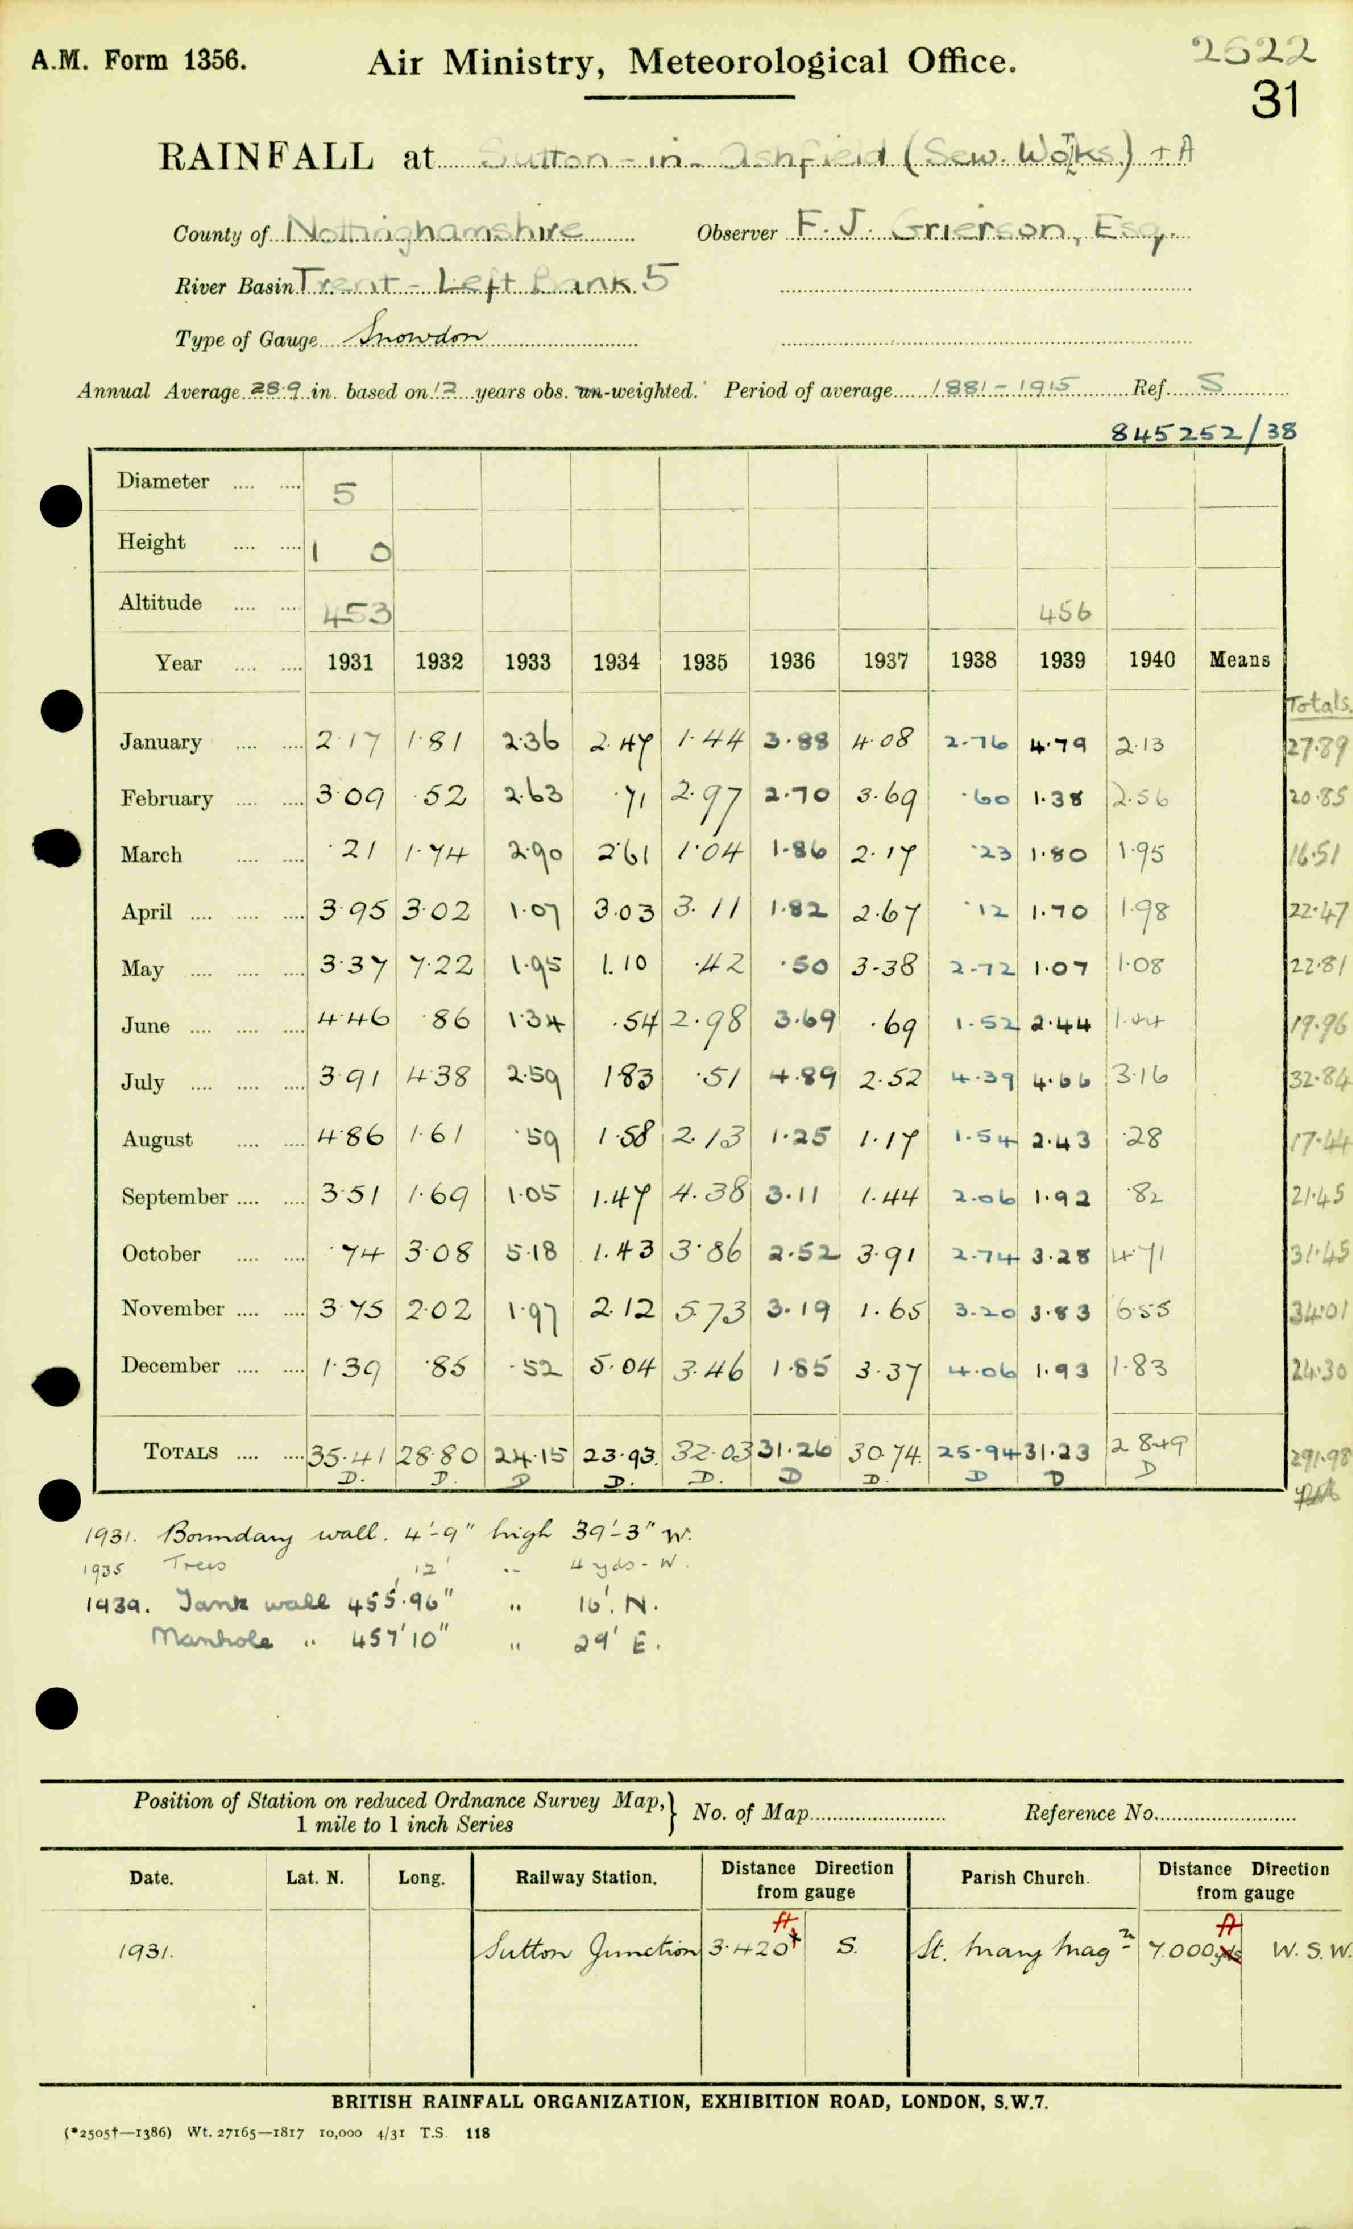 A.M. Form 1356. Air Ministry, Meteorological Office. 2622
31
RAINFALL at Sutton-in-Ashfield (Sew. Works) + A
County of Nottinghamshire Observer F. J. Grierson, Esq.
River Basin Trent - Left Bank 5
Type of Gauge Snowdon
Annual Average 28.9 in. based on 12 years obs. un-weighted. Period of average 1881-1915 Ref. S
845252/38
Diameter 5
Height 1 0
Altitude 453 456
Year 1931 1932 1933 1934 1935 1936 1937 1938 1939 1940 Means
Totals.
January 2.17 1.81 2.36 2.47 1.44 3.88 4.08 2.76 4.79 2.13 27.89
February 3.09 .52 2.63 .71 2.97 2.70 3.69 .60 1.38 2.56 20.85
March .21 1.74 2.90 2.61 1.04 1.86 2.17 .23 1.80 1.95 16.51
April 3.95 3.02 1.07 3.03 3.11 1.82 2.67 .12 1.70 1.98 22.47
May 3.37 7.22 1.95 1.10 .42 .50 3.38 2.72 1.07 1.08 22.81
June 4.46 .86 1.34 .54 2.98 3.69 .69 1.52 2.44 1.44 19.96
July 3.91 4.38 2.59 1.83 .51 4.89 2.52 4.39 4.66 3.16 32.84
August 4.86 1.61 .59 1.58 2.13 1.25 1.17 1.54 2.43 .28 17.44
September 3.51 1.69 1.05 1.47 4.38 3.11 1.44 2.06 1.92 .82 21.45
October .74 3.08 5.18 1.43 3.86 2.52 3.91 2.74 3.28 4.71 31.45
November 3.75 2.02 1.97 2.12 5.73 3.19 1.65 3.20 3.83 6.55 34.01
December 1.39 .85 .52 5.04 3.46 1.85 3.37 4.06 1.93 1.83 24.30
TOTALS 35.41 28.80 24.15 23.93 32.03 31.26 30.74 25.94 31.23 28.49 291.98
D. D. D D. D. D D. D D D
1931. Boundary wall. 4'-9" high 39'-3" W.
1935 Trees 12' " 4 yds - W.
1939. Tank wall 455'.96" " 16'. N.
Manhole " 457'10" " 29' E.
Position of Station on reduced Ordnance Survey Map, 1 mile to 1 inch Series } No. of Map Reference No.
Date. Lat. N. Long. Railway Station. Distance Direction from gauge Parish Church. Distance Direction from gauge
ft ft
1931. Sutton Junction 3.420 S. St. Mary Mag n 7.000 yds W.S.W.
BRITISH RAINFALL ORGANIZATION, EXHIBITION ROAD, LONDON, S.W.7.
(*2505†—1386) Wt. 27165—1817 10,000 4/31 T.S. 118